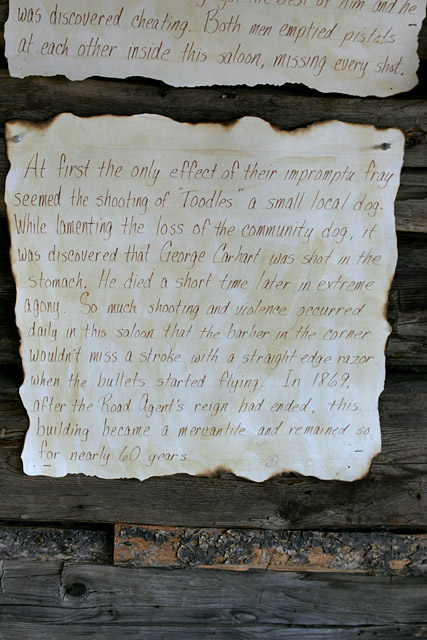 got the best of him and he
was discovered cheating. Both men emptied pistols
at each other inside this saloon, missing every shot.
At first the only effect of their impromptu fray
seemed the shooting of "Toodles" a small local dog.
While lamenting the loss of the community dog, it
was discovered that George Carhart was shot in the
stomach. He died a short time later in extreme
agony. So much shooting and violence occurred
daily in this saloon that the barber in the corner
wouldn't miss a stroke with a straight edge razor
when the bullets started flying. In 1869,
after the Road Agent's reign had ended, this
building became a mercantile and remained so
for nearly 60 years